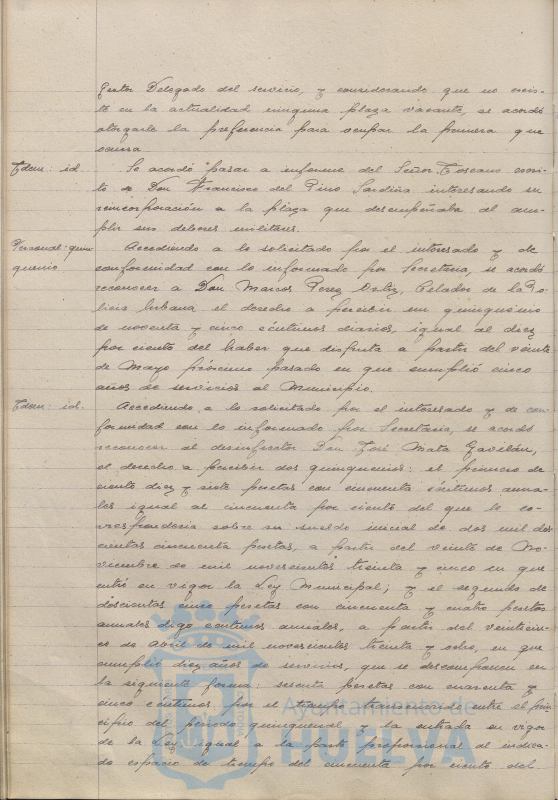 Gestor Delegado del servicio, y considerando que no exis-
te en la actualidad ninguna plaza vacante, se acordó
otorgarle la preferencia para ocupar la primera que
ocurra
Idem: id. Se acordó pasar a informe del Señor Toscano escri-
to de Don Francisco del Pino Sardiña interesando su
reincorporación a la plaza que desempeñaba al cum-
plir sus deberes militares.
Personal: quin- Accediendo a lo solicitado por el interesado y de
quenio. conformidad con lo informado por Secretaría, se acordó
reconocer a Don Marcos Perez Ortiz, Celador de la Po-
licia Urbana el derecho a percibir un quinquenio
de noventa y cinco céntimos diarios, igual al diez
por ciento del haber que disfruta a partir del veinte
de Mayo próximo pasado en que cumplió cinco
años de servicios al Municipio.
Idem: id. Accediendo a lo solicitado por el interesado y de con-
formidad con lo informado por Secretaría, se acordó
reconocer al desinfector Don José Mata Gavilán,
el derecho a percibir dos quinquenios: el primero de
ciento diez y siete pesetas con cincuenta céntimos anua-
les igual al cincuenta por ciento del que le co-
rrespondería sobre su sueldo inicial de dos mil dos-
cientas cincuenta pesetas, a partir del veinte de No-
viembre de mil novecientos treinta y cinco en que
entró en vigor la Ley Municipal; y el segundo de
doscientas cinco pesetas con cincuenta y cuatro pesetas
anuales digo céntimos anuales, a partir del veinticin-
co de Abril de mil novecientos treinta y ocho, en que
cumplió diez años de servicios, que se descomponen en
la siguiente forma: sesenta pesetas con cuarenta y
cinco céntimos por el tiempo transcurrido entre el prin-
cipio del periodo quinquenal y la entrada en vigor
de la Ley, igual a la parte proporcional al indica-
do espacio de tiempo del cincuenta por ciento del
Ayuntamiento de
HUELVA